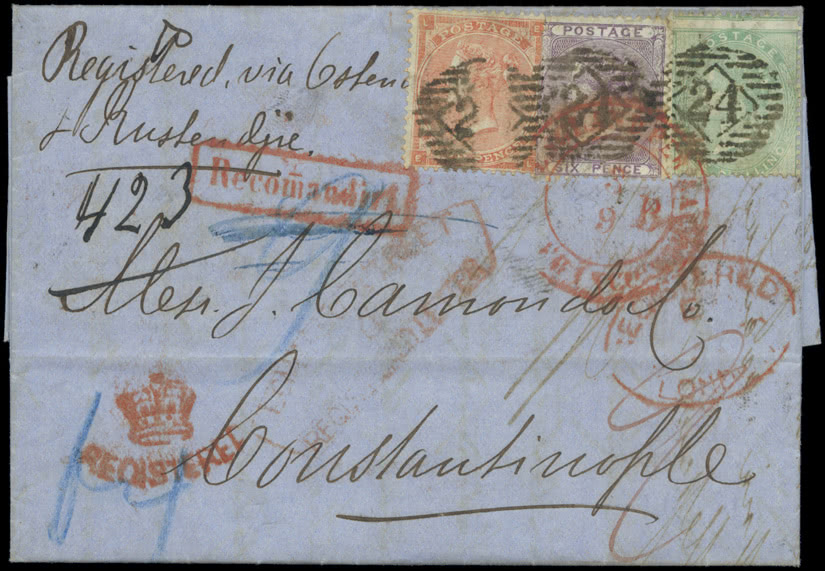 POSTAGE POSTAGE POSTAGE
24 24
PENCE SIX PENCE
Registered, via Ostend
& Kustendjie.
Recomandirt
423
9 B
Messr. J. Camondo & Co.
REGISTERED
LONDON
REGISTERED
Constantinople